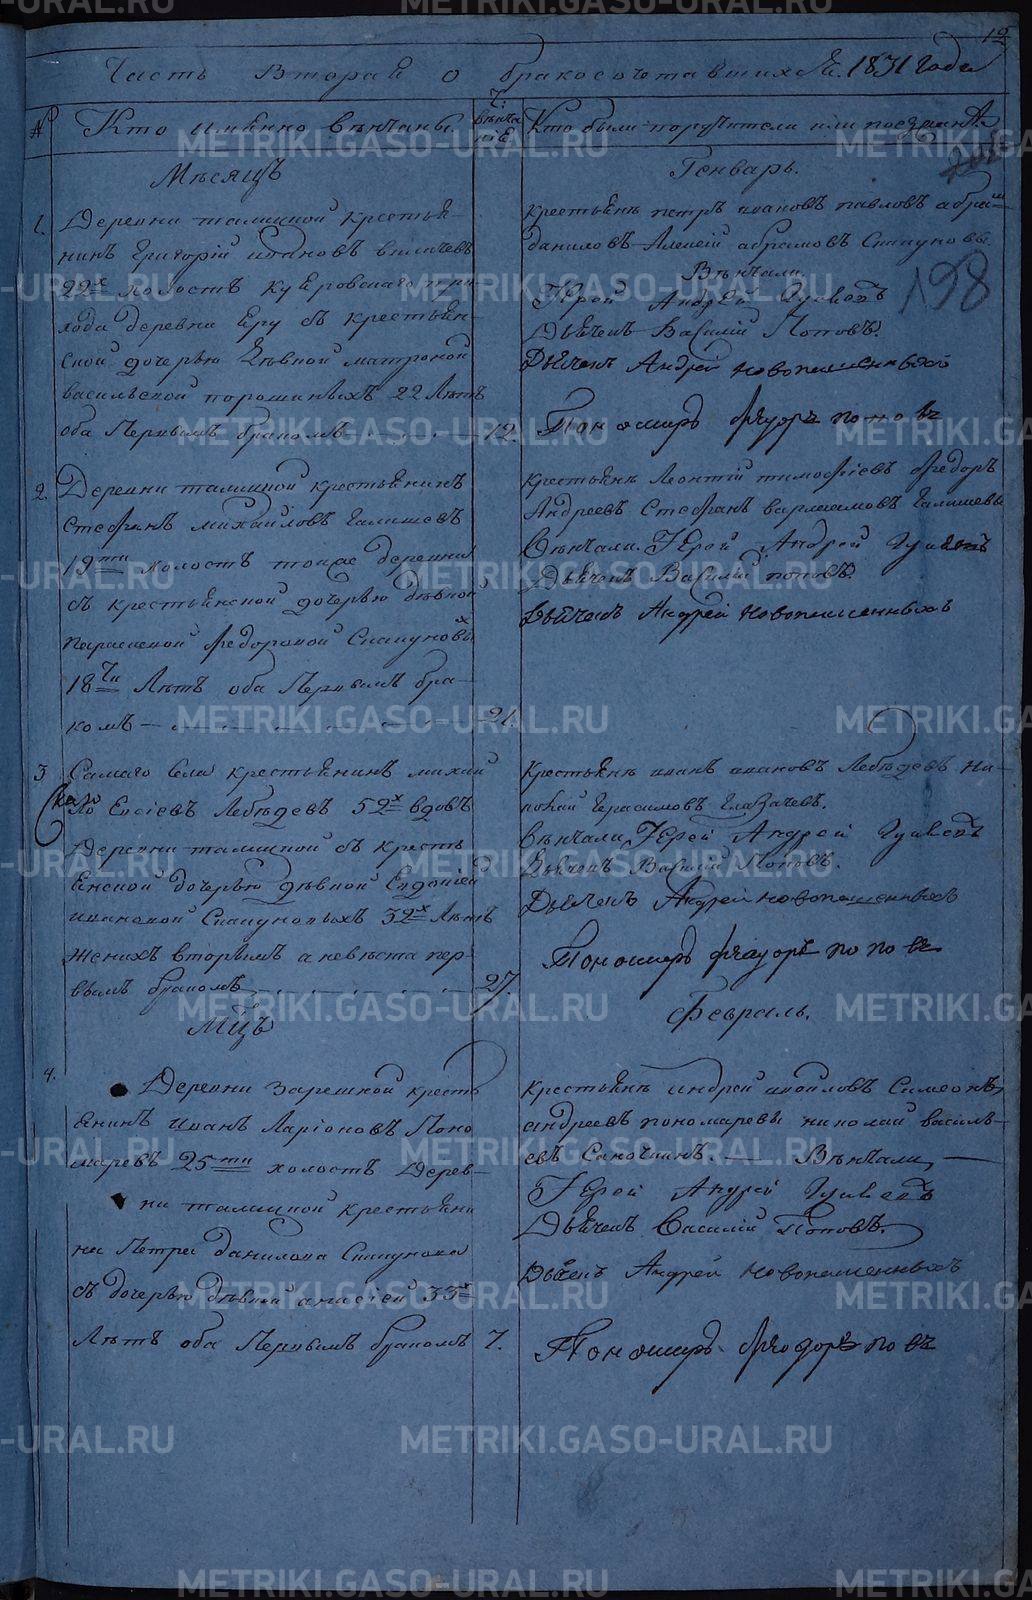 12
Часть Вторая о бракосочетавшихся 1831 года
№ Кто имянно вѣнчаны Ч: вѣнчаніе Кто были поручители или поѣзжане
198
Мѣсяцъ Генварь.
1. Деревни талицкой крестья-
нинъ Григорій ивановъ
22х холостъ
хода деревни Еру съ крестьян-
ской дочерью дѣвкой матроной
васильевой порошиныхъ 22 Лѣтъ
оба Первымъ бракомъ 12.
крестьянъ петръ ивановъ павловъ абрам
даниловъ Алексѣй абрамовъ Скакуновы
Вѣнчали.
Іерей Андрей
Дьячекъ Василій Поповъ.
Дьячекъ Андрей новопашенныхъ
Пономарь Феодоръ поповъ
2. Деревни талицкой крестьянинъ
Стефанъ михаиловъ Галишевъ
19ти холостъ тоияс деревни
съ крестьянской дочерью дѣвкой
параскевой федоровой Скакуновых
18ти Лѣтъ оба Первымъ бра-
комъ 21.
крестьянъ Леонтій тимофіевъ Федоръ
Андреевъ Стефанъ варламовъ Галишевы
Вѣнчали. Іерей Андрей
Дьячекъ Василій поповъ.
Дьячекъ Андрей новопашенныхъ
3 Самаго села крестьянинъ михай
ло Елсіевъ Лебѣдевъ 52х вдовъ
Деревни талицкой съ кресть
янской дочерью дѣвкой Евдокіей
ивановой Скакуновыхъ 32х Лѣтъ
женихъ вторымъ а невѣста пер-
вымъ бракомъ 27.
крестьянъ иванъ ивановъ Лебѣдевъ
Герасимовъ Глазачевъ.
Вѣнчали, Іерей Андрей
Дьячекъ Василій Поповъ.
Дьячекъ Андрей новопашенныхъ
Пономарь феодоръ поповъ
Мцъ Февраль.
4. Деревни зарешной кресть
янинъ Иванъ Ларіоновъ Поно
маревъ 25ти холостъ Дерев-
ни талицкой крестьяни
на Петра данилова Скакунова
съ дочерью дѣвкой анисіей 33х
Лѣтъ оба Первымъ бракомъ 7.
крестьянъ Андрей Симеонъ
андреевъ пономаревы николай василь-
евъ Вѣнчали,
Іерей Андрей
Дьячекъ Василій Поповъ.
Дьячекъ Андрей новопашенныхъ
Пономарь Феодоръ поповъ
METRIKI.GASO-URAL.RU